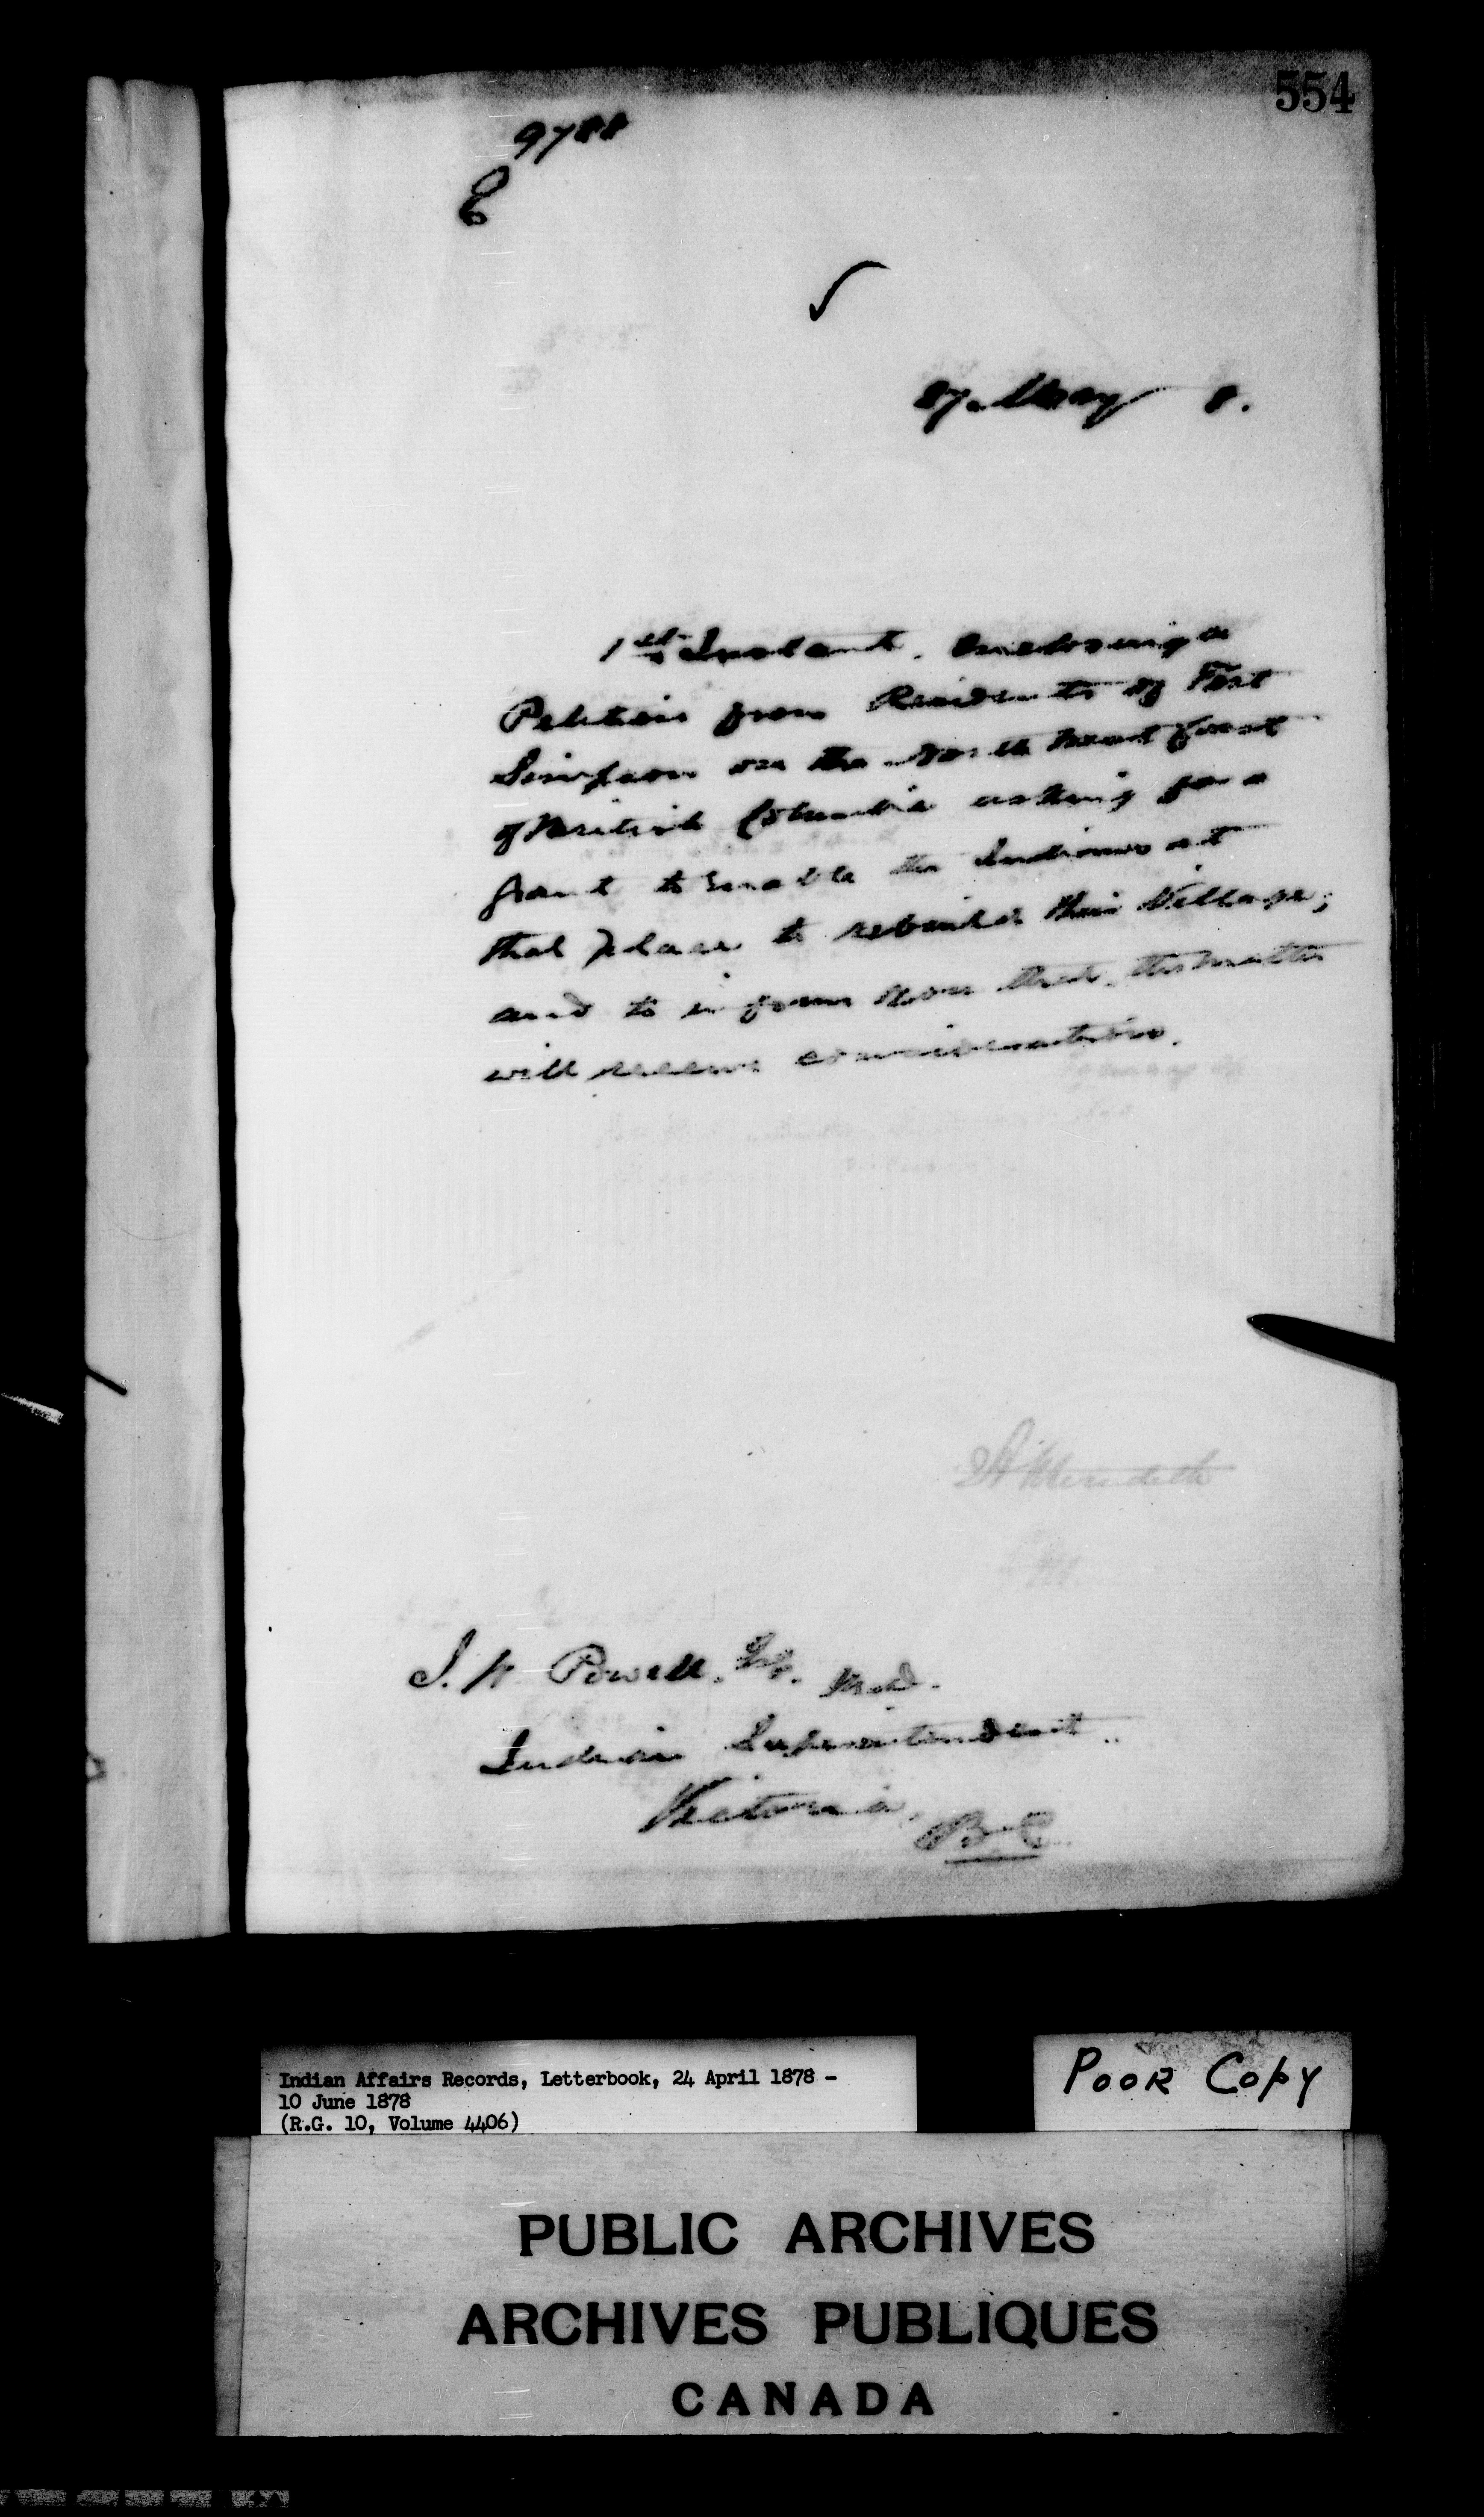 554
9788
E
27. May 8.
1st Instant. Enclosing a
Petition from Residents of Fort
Simpson on the North West Coast
of British Columbia asking for a
grant to enable the Indians at
that place to rebuild their Village;
and to inform you that, the matter
will receive consideration.
Meredith
I. W. Powell. Esq. M.D.
Indian Superintendent.
Victoria,
B.C.
Indian Affairs Records, Letterbook, 24 April 1878 -
10 June 1878
(R.G. 10, Volume 4406)
POOR COPY
PUBLIC ARCHIVES
ARCHIVES PUBLIQUES
CANADA